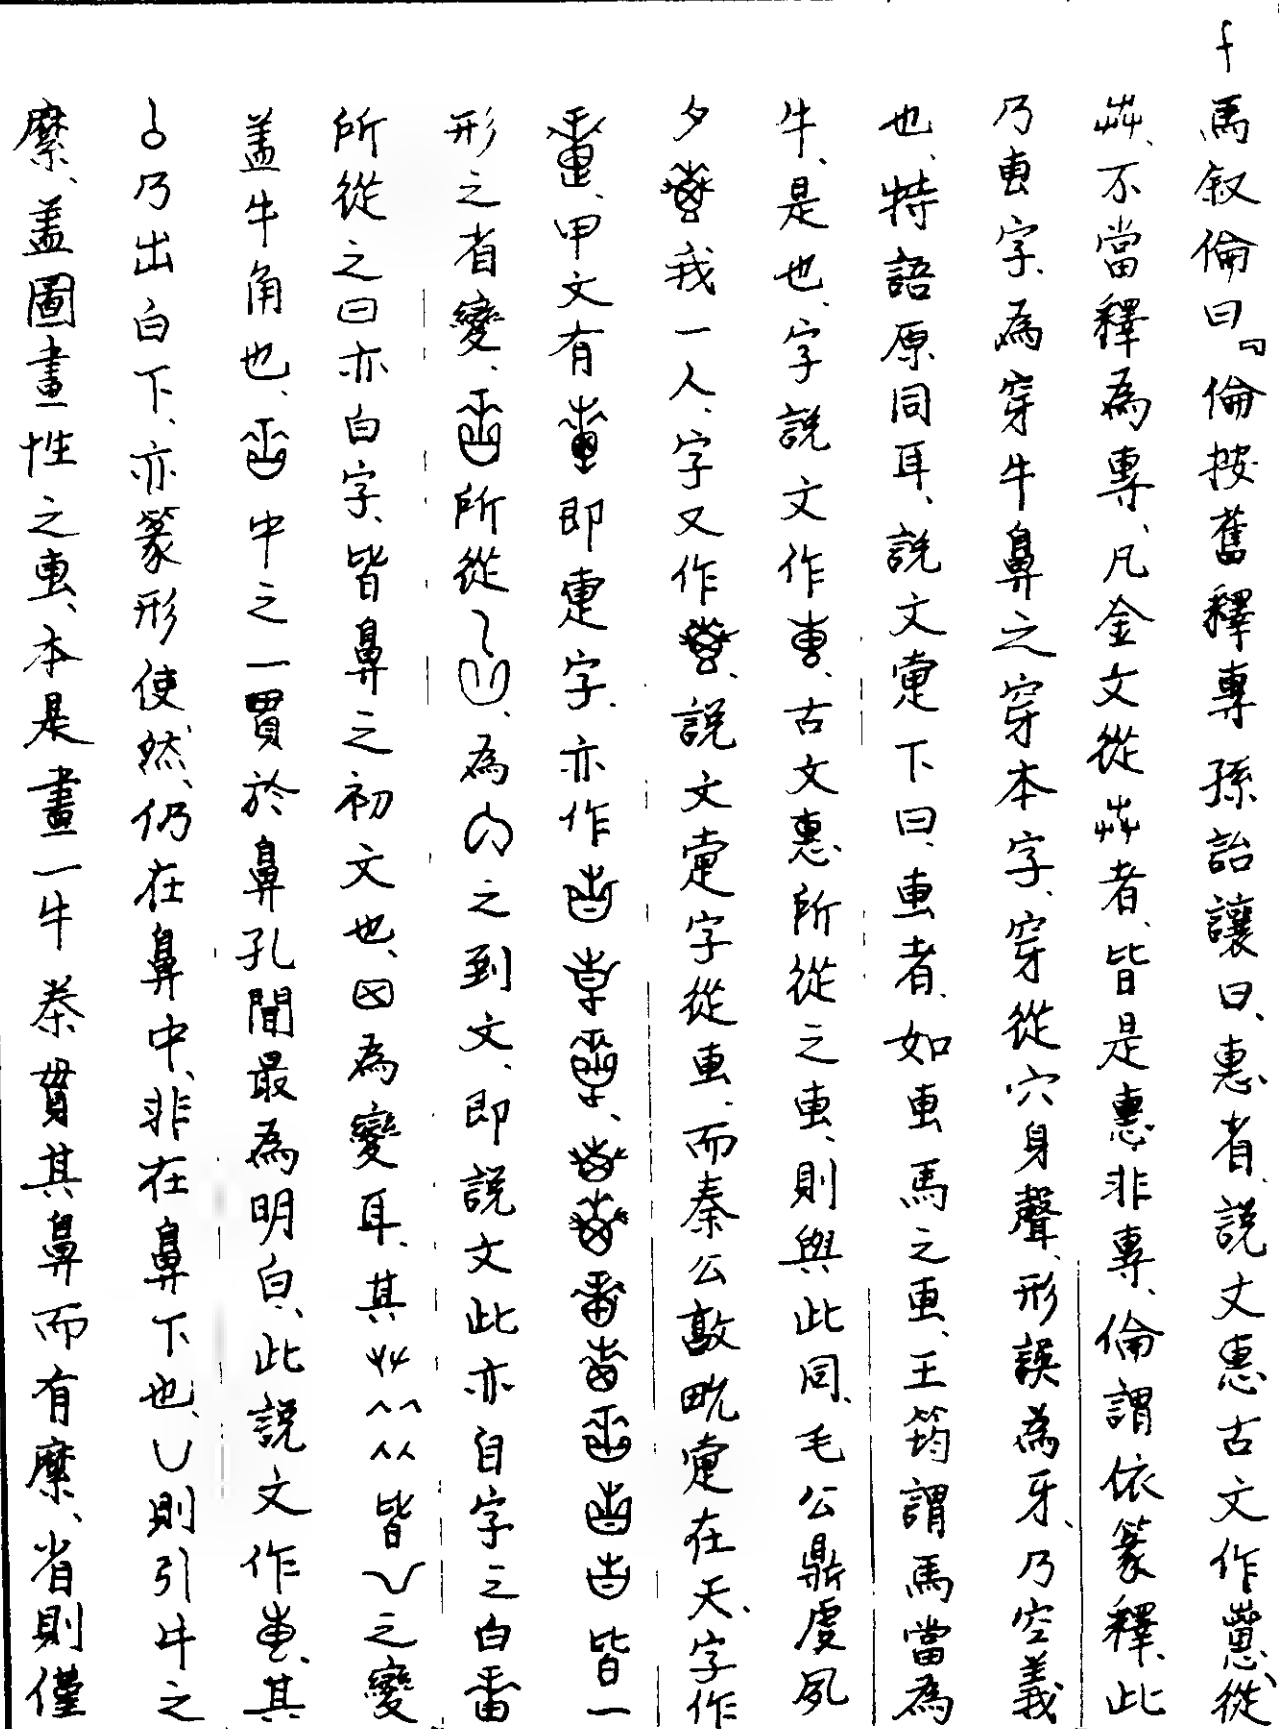 馬叙倫曰『倫按舊釋專孫詒讓曰、惠者、說文惠古文作、從
芔、不當釋為專、凡金文從芔者、皆是惠非專、倫謂依篆釋、此
乃叀字、為穿牛鼻之穿本字、穿從穴身聲、形誤為牙、乃空義
也、特語原同耳、說文疐下曰、叀者、如叀馬之叀、王筠謂馬當為
牛、是也、字說文作、古文惠所從之叀、則與此同、毛公鼎虔夙
夕我一人、字又作、說文疐字從叀、而秦公敦畯疐在天、字作
、甲文有即疐字、亦作皆一
形之省變、所從、為之到文、即說文此亦自字之白
所從之曰亦白字、皆鼻之初文也、為變耳、其皆之變
蓋牛角也、中之一貫於鼻孔間最為明白、此說文作、其
乃出白下、亦篆形使然、仍在鼻中、非在鼻下也、則引牛之
縻、蓋圖畫性之叀、本是畫一牛桊貫其鼻而有縻、省則僅